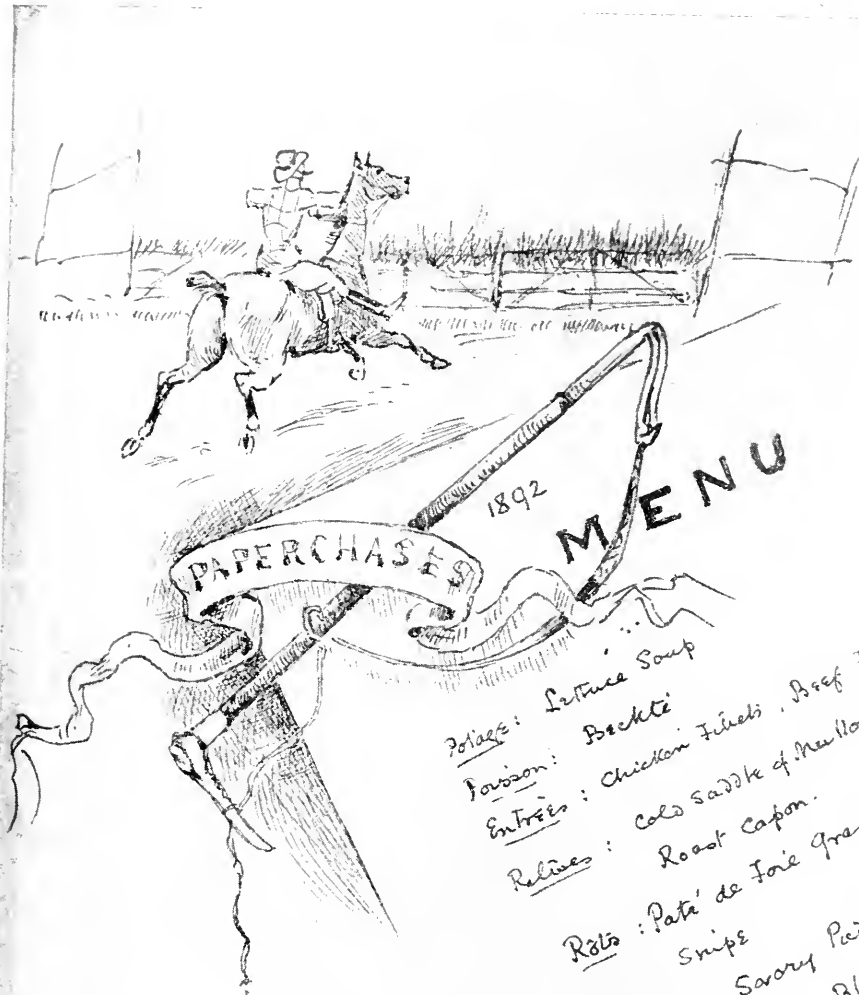 PAPERCHASES
1892
MENU
Potage: Lettuce Soup
Poisson: Beckté
Entrées: Chicken Fillets, Beef
Relives: Cold Saddle of Mutto
Roast Capon.
Rôts: Paté de Foie Gra
Snipe
Savory